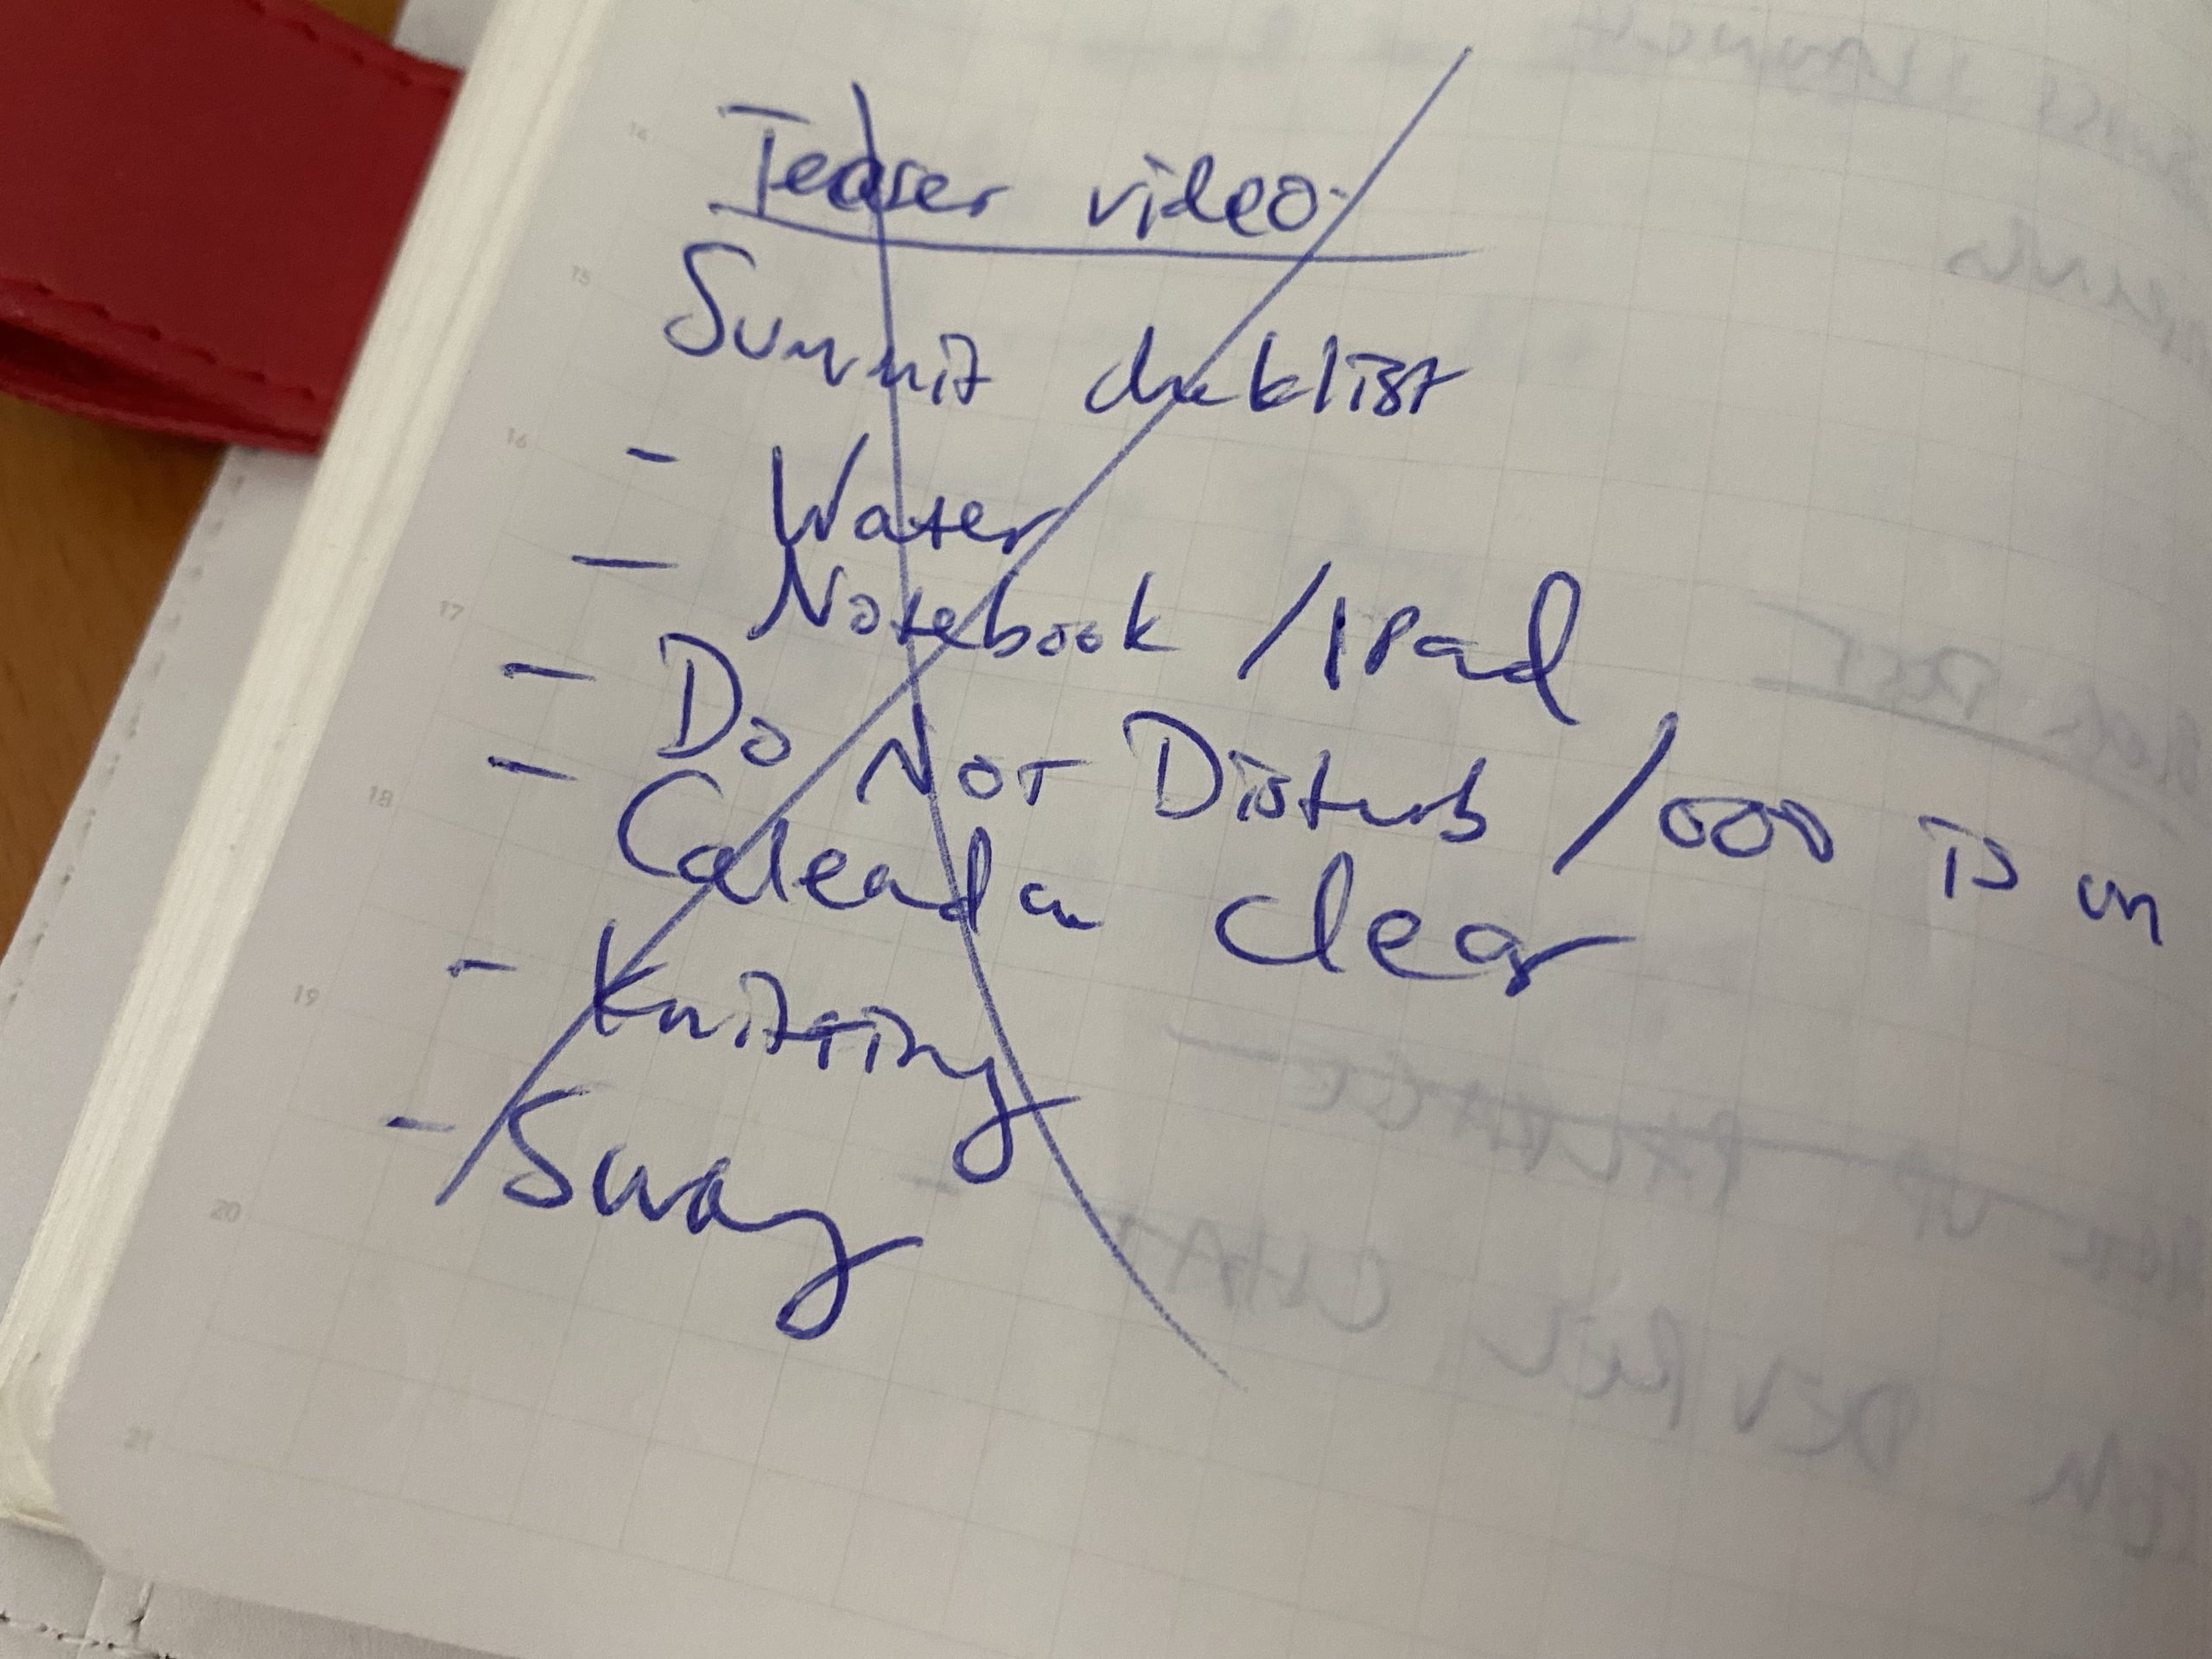 Teaser video
Summit checklist
- Water
- Notebook / IPad
- Do Not Disturb / OOO is on
- Calendar clear
- Knitting
- Swag
14
15
16
17
18
19
20
21